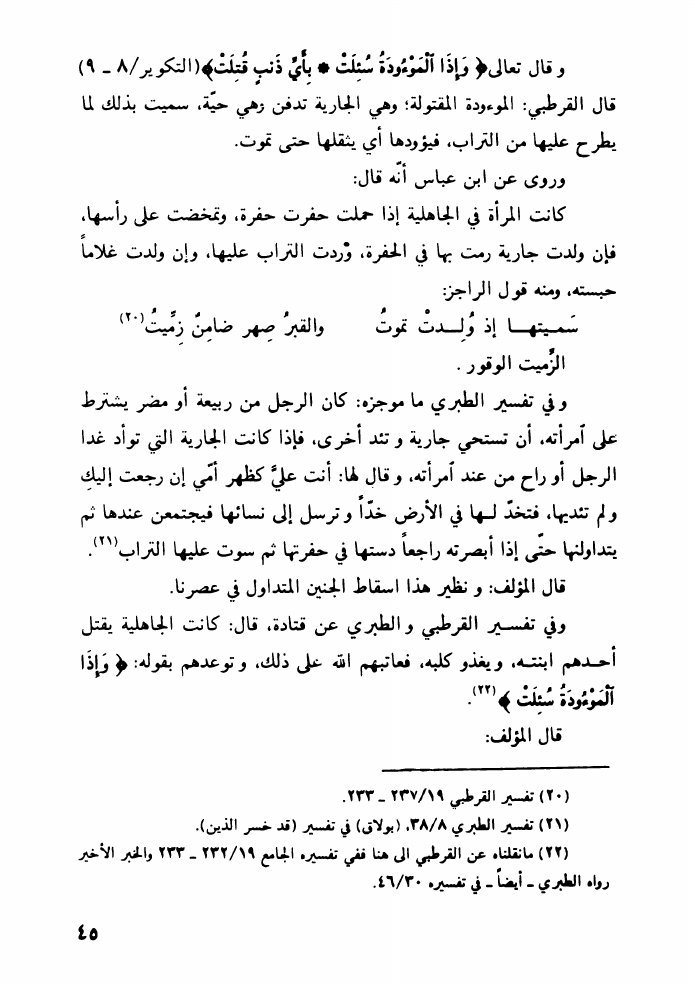 و قال تعالى﴿ وَإِذَا ٱلْمَوْءُودَةُ سُئِلَتْ * بِأَيِّ ذَنبٍ قُتِلَتْ﴾(التكوير/٨ ـ ٩)
قال القرطبي: الموءودة المقتولة؛ وهي الجارية تدفن وهي حيّة، سميت بذلك لما
يطرح عليها من التراب، فيؤودها أي يثقلها حتى تموت.
وروى عن ابن عباس أنّه قال:
كانت المرأة في الجاهلية إذا حملت حفرت حفرة، وتمخضت على رأسها،
فإن ولدت جارية رمت بها في الحفرة، وْردت التراب عليها، وإن ولدت غلاماً
حبسته، ومنه قول الراجز:
سَمـيتهـــا إذ وُلِــدتْ تموتُ والقبرُ صِهر ضامِنٌ زِمِّيتُ(٢٠)
الزِّميت الوقور .
و في تفسير الطبري ما موجزه: كان الرجل من ربيعة أو مضر يشترط
على أمرأته، أن تستحي جارية و تئد أخرى، فإذا كانت الجارية التي توأد غدا
الرجل أو راح من عند أمرأته، و قال لها: أنت عليَّ كظهر أمّي إن رجعت إليكِ
و لم تئديها، فتخدّ لــها في الأرض خدّاً و ترسل إلى نسائها فيجتمعن عندها ثم
يتداولنها حتّى إذا أبصرته راجعاً دستها في حفرتها ثم سوت عليها التراب(٢١).
قال المؤلف: و نظير هذا اسقاط الجنين المتداول في عصرنا.
وفي تفســير القرطبي و الطبري عن قتادة، قال: كانت الجاهلية يقتل
أحـدهم ابنتـه، و يغذو كلبه، فعاتبهم الله على ذلك، و توعدهم بقوله: ﴿ وَإِذَا
ٱلْمَوْءُودَةُ سُئِلَتْ ﴾(٢٢).
قال المؤلف:
(٢٠) تفسير القرطبي ٢٣٧/١٩ ـ ٢٣٣.
(٢١) تفسير الطبري ٣٨/٨، (بولاق) في تفسير (قد خسر الذين).
(٢٢) مانقلناه عن القرطبي الى هنا ففي تفسيره الجامع ٢٣٢/١٩ ـ ٢٣٣ والخبر الأخير
رواه الطبري ـ أيضاً ـ في تفسيره ٤٦/٣٠.
٤٥